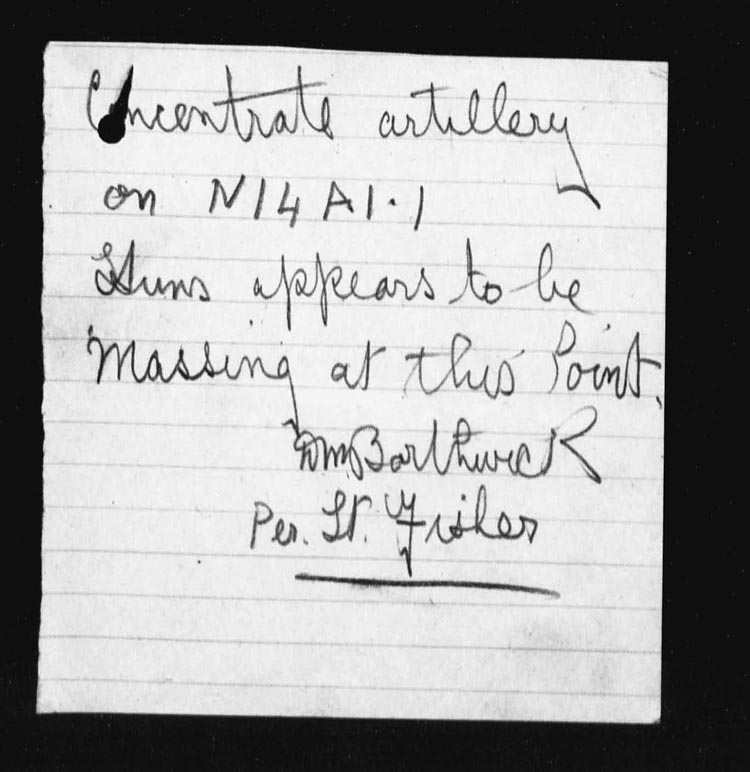 Concentrate artillery
on N14 A1.1
Huns appears to be
Massing at this Point.
DM Borthwick
Per. Lt. Fisher